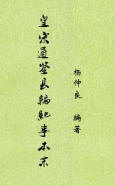 皇宋通鉴長編紀事本末
楊仲良 編著